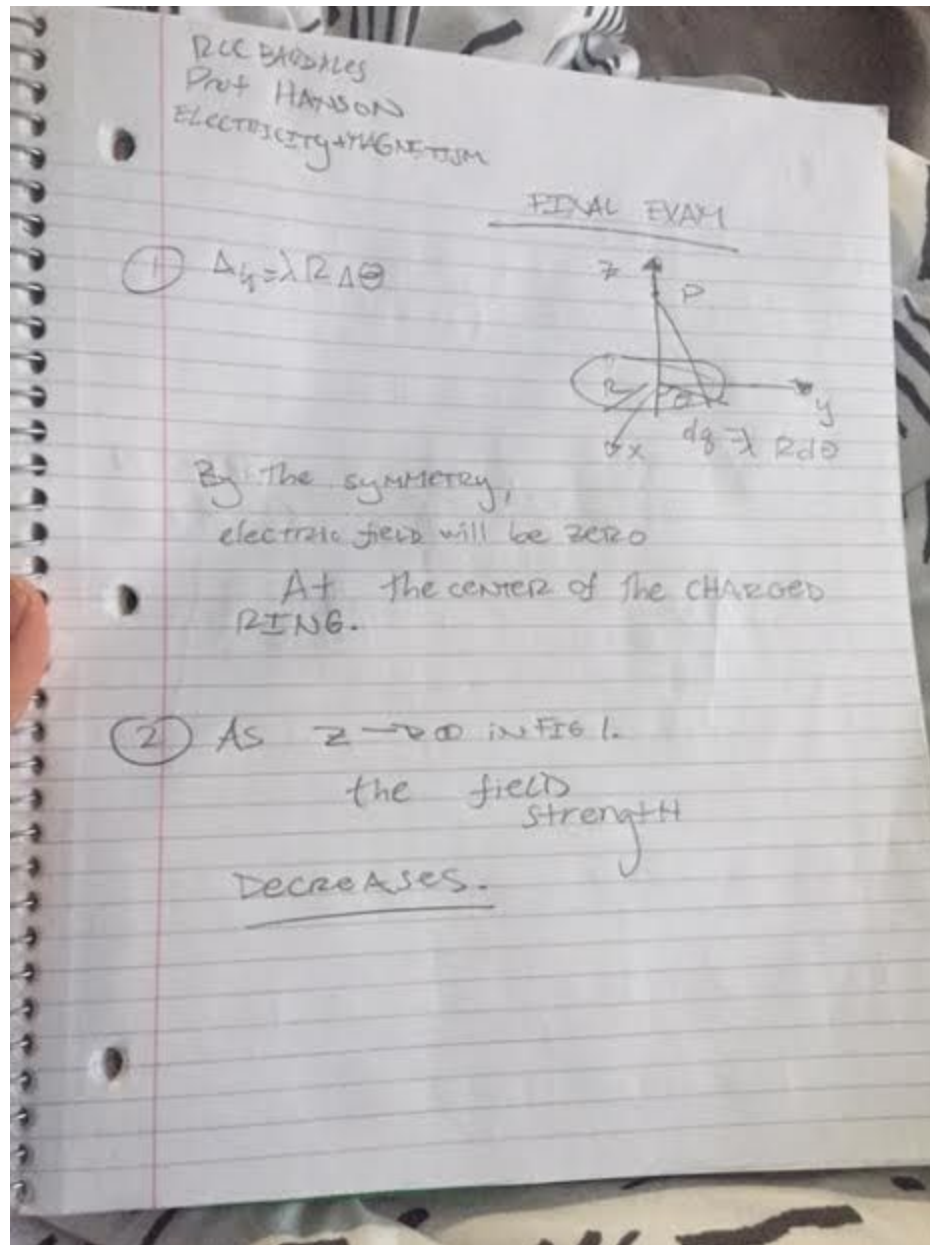 Prof HANSON
ELECTRICITY + MAGNETISM
FINAL EXAM
① Δq = λ R Δθ
z
P
R
θ
y
x
dq = λ Rdθ
By the symmetry,
electric field will be zero
At the center of the CHARGED
RING.
② As z → ∞ in FIG 1.
the field
strength
Decreases.